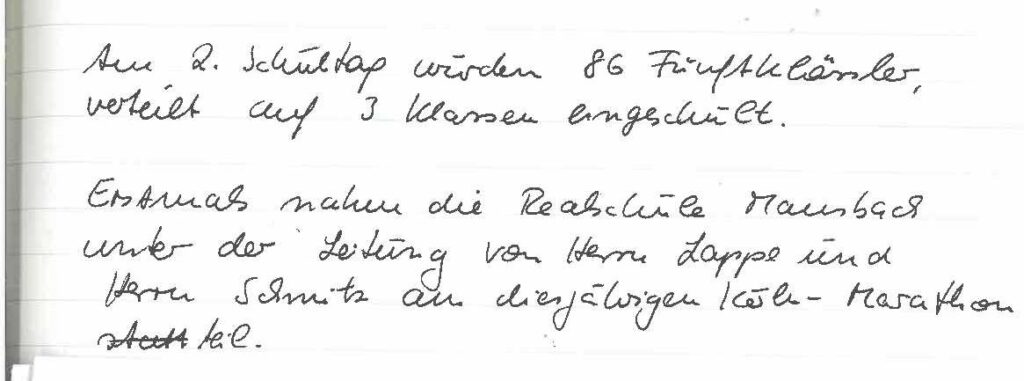 Am 2. Schultag wurden 86 Fünftklässler,
verteilt auf 3 Klassen eingeschult.
Erstmals nahm die Realschule Mausbach
unter der Leitung von Herrn Lappe und
Herrn Schmitz am diesjährigen Köln-Marathon
statt teil.